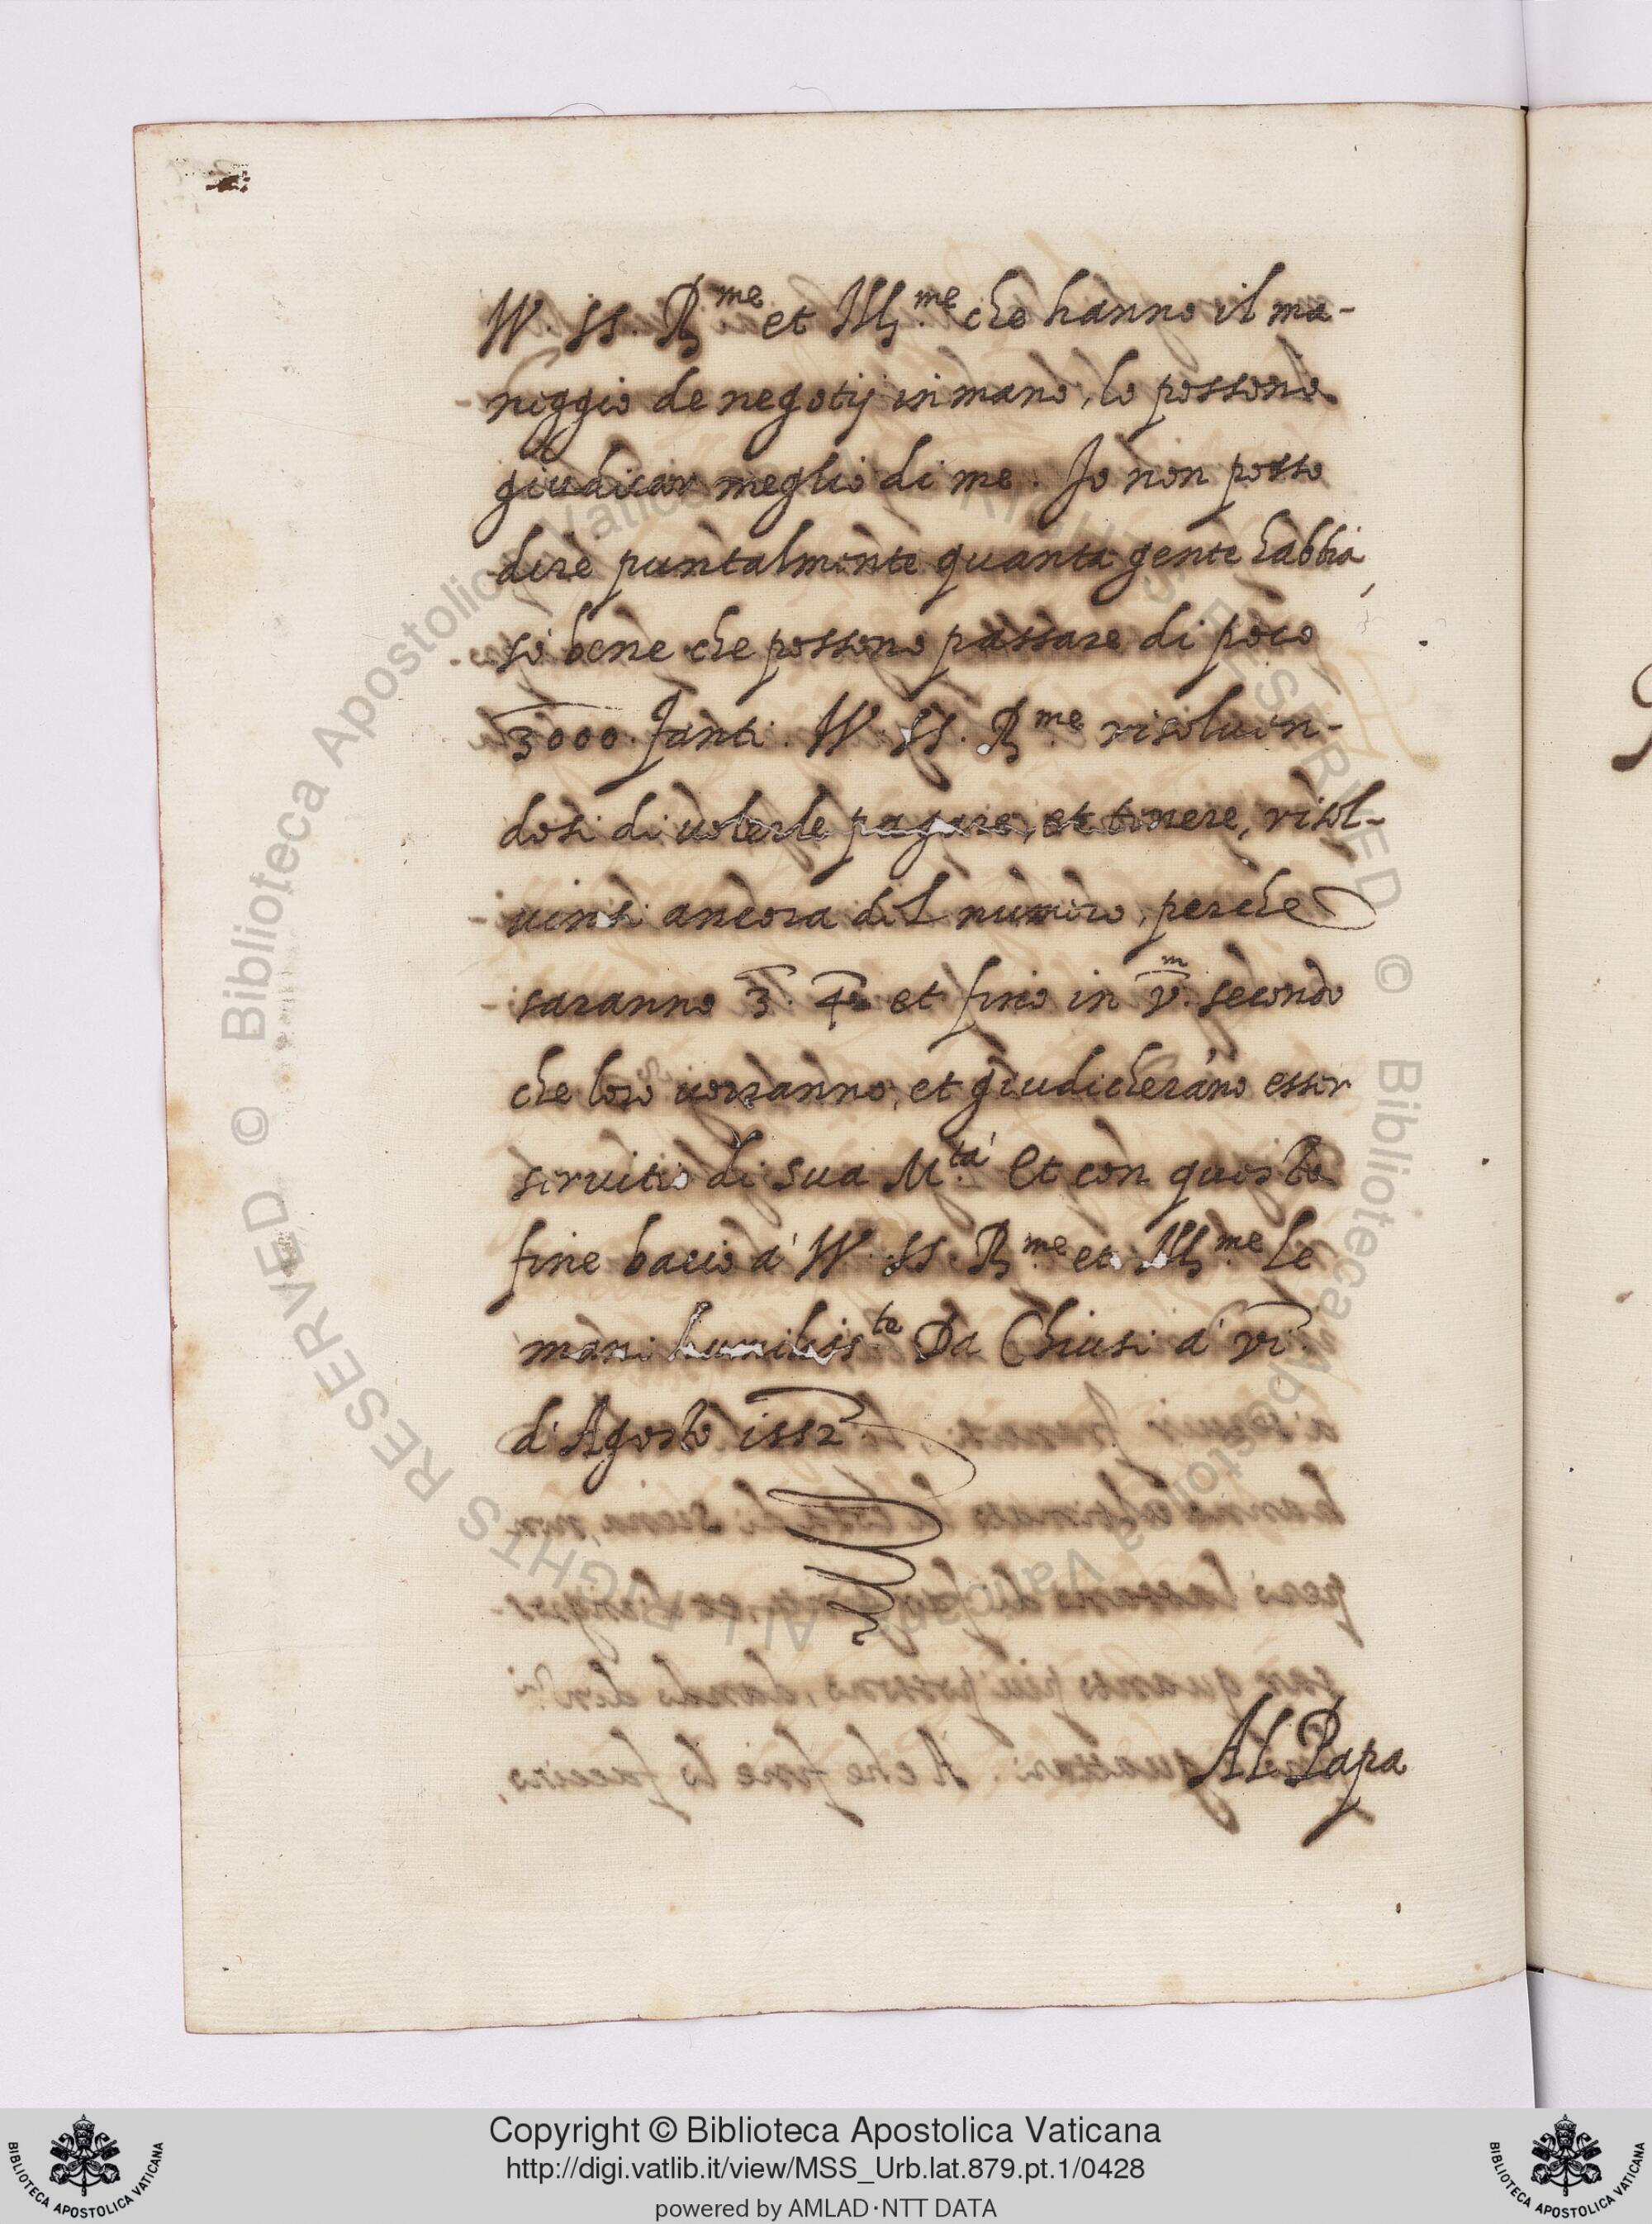 VV. SS. R.me et Ill.me che hanno il ma-
neggio de negotij in mano, lo possono
giudicar meglio di me. Io non posso
dire puntalmente quanta gente habbia,
so bene che possono passare di poco
3000. fanti. VV. SS. R.me risoluen-
dosi di volerle pagare, et tenere, risol-
uinsi ancora del numero, perche
saranno 3. 4. et fino in V.m secondo
che loro vorranno, et giudicherano esser
servitio di sua M.tà Et con questo
fine bacio à VV. SS. R.me et Ill.me le
mani humiliss.te Da Chiusi à VI.
d'Agosto 1552
Al Papa
Copyright © Biblioteca Apostolica Vaticana
http://digi.vatlib.it/view/MSS_Urb.lat.879.pt.1/0428
powered by AMLAD·NTT DATA
BIBLIOTECA APOSTOLICA VATICANA
BIBLIOTECA APOSTOLICA VATICANA
© Biblioteca Apostolica Vaticana ALL RIGHTS RESERVED © Biblioteca Apostolica Vaticana ALL RIGHTS RESERVED